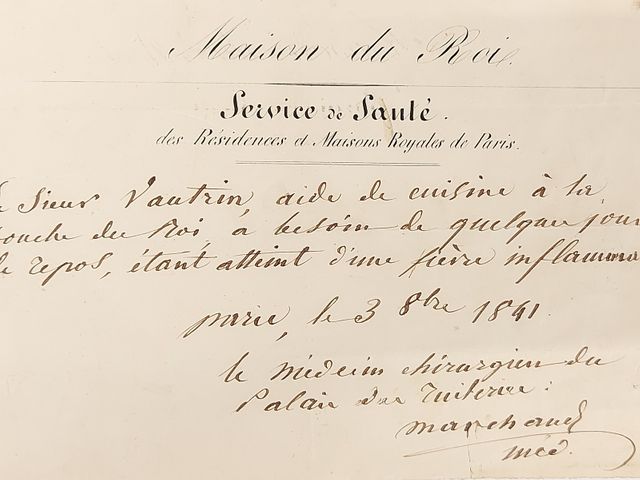 Maison du Roi.
Service de Santé.
des Résidences et Maisons Royales de Paris.
Sieur Vautrin, aide de cuisine à la
ouche du Roi, à besoin de quelque jour
de repos, étant atteint d'une fièvre inflamma
paris, le 3 8bre 1841.
le médecin chirurgien du
Palais des Tuilerie :
marchand
méd.